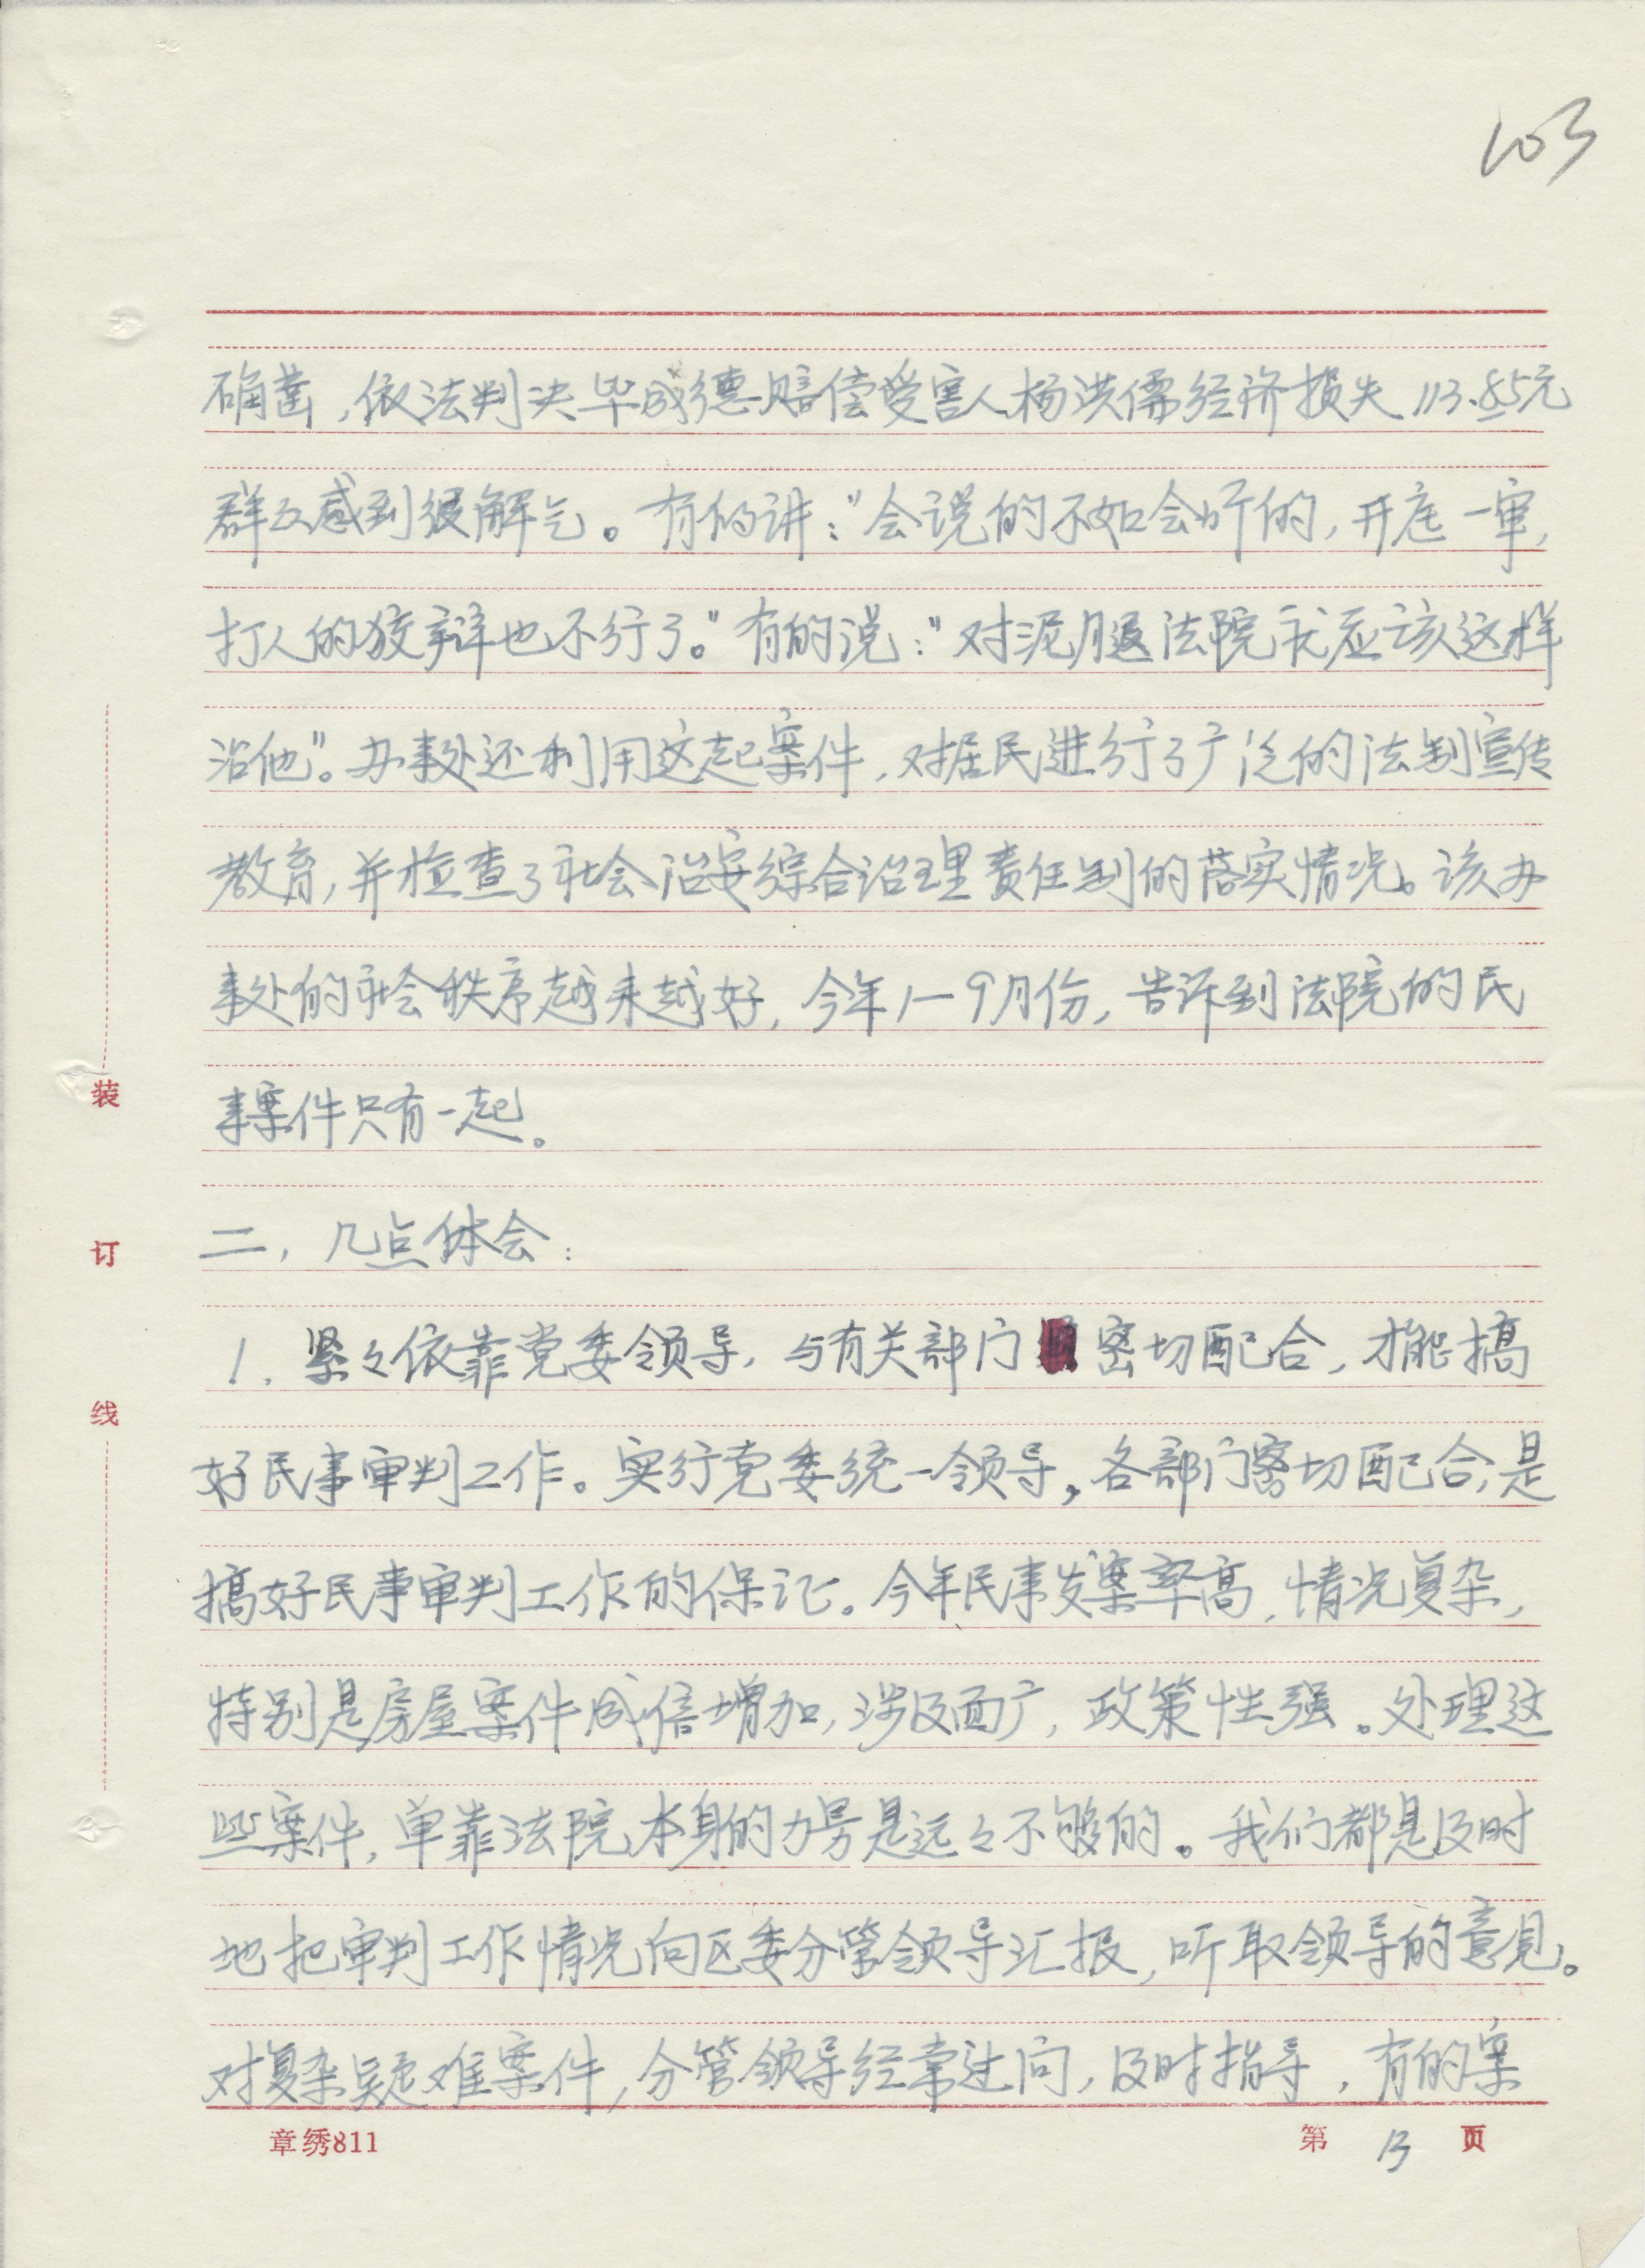 103
确凿，依法判决毕成德赔偿受害人杨洪儒经济损失113.85元
群众感到很解气。有的讲："会说的不如会听的，开庭一审，
打人的狡辩也不行了。"有的说："对泥腿法院就应该这样
治他"。办事处还利用这起案件，对居民进行了广泛的法制宣传
教育，并检查了社会治安综合治理责任制的落实情况。该办
事处的社会秩序越来越好，今年1—9月份，告诉到法院的民
事案件只有一起。
二，几点体会：
1．紧々依靠党委领导，与有关部门密切配合，才能搞
好民事审判工作。实行党委统一领导，各部门密切配合，是
搞好民事审判工作的保证。今年民事发案率高，情况复杂，
特别是房屋案件成倍增加，涉及面广，政策性强。处理这
些案件，单靠法院本身的力量是远々不够的。我们都是及时
地把审判工作情况向区委分管领导汇报，听取领导的意见。
对复杂疑难案件，分管领导经常过问，及时指导，有的案
装
订
线
章绣811
第 13 页